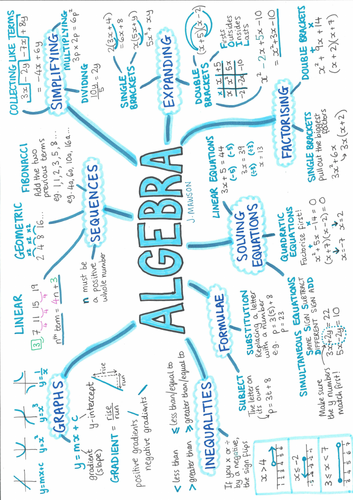 ALGEBRA
J. MAWSON
SIMPLIFYING
COLLECTING LIKE TERMS
3x - 2y - 7x + 8y
= -4x + 6y
MULTIPLYING
3p × 2p = 6p²
DIVIDING
EXPANDING
SINGLE
BRACKETS
2(3x+4)
= 6x + 8
x(5x+y)
5x² + xy
DOUBLE
BRACKETS
(x+5)(x-2)
Firsts
Outsides
Insides
Lasts
x² - 2x + 5x - 10
= x² + 3x - 10
FACTORISING
DOUBLE BRACKETS
x² + 9x + 14
(x+2)(x+7)
SINGLE BRACKETS
Pull out the biggest
factors
3x² + 6x
3x(x+2)
SOLVING
EQUATIONS
LINEAR EQUATIONS
3x + 5 = 44
(-5) (-5)
3x = 39
(÷3) (÷3)
x = 13
QUADRATIC
EQUATIONS
Factorise first!
x² - 5x - 14 = 0
(x-7)(x+2) = 0
x = 7 x = -2
SIMULTANEOUS EQUATIONS
SAME SIGN SUBTRACT
DIFFERENT SIGN ADD
Make sure
the y numbers
match first!
3x - 2y = 22
5x - 2y = 10
FORMULAE
SUBSTITUTION
Replacing a letter
with a number
e.g. p = 3(5) + 8
p = 23
SUBJECT
The letter on
its own
p = 3a + 8
INEQUALITIES
< less than
> greater than
≤ less than/equal to
≥ greater than/equal to
If you × or ÷
by a negative,
the sign flips
x > 4
x ≤ -2
3 ≤ x < 7
GRAPHS
y = mx + c
gradient
(slope)
y-intercept
GRADIENT = rise
run
positive gradients
negative gradients
y=mx+c
y=x²
y=x³
SEQUENCES
n must be
a positive
whole number
LINEAR
3, 7, 11, 15, 19
nth term = 4n + 3
GEOMETRIC
×2 ×2 ×2
2 4 8 16...
FIBONACCI
Add the two
previous terms
e.g. 1, 1, 2, 3, 5, 8...
e.g. 4a, 6a, 10a, 16a...